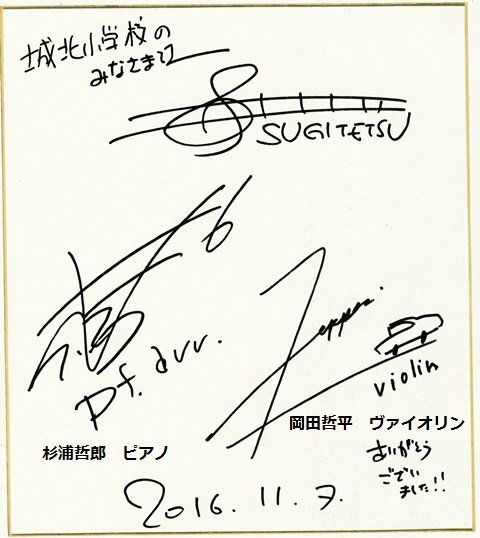 城北小学校の
みなさまへ
SUGITETSU
Pf. arr.
Teppei.
violin
岡田哲平　ヴァイオリン
杉浦哲郎　ピアノ
ありがとう
ござい
ました!!
2016.11.7.